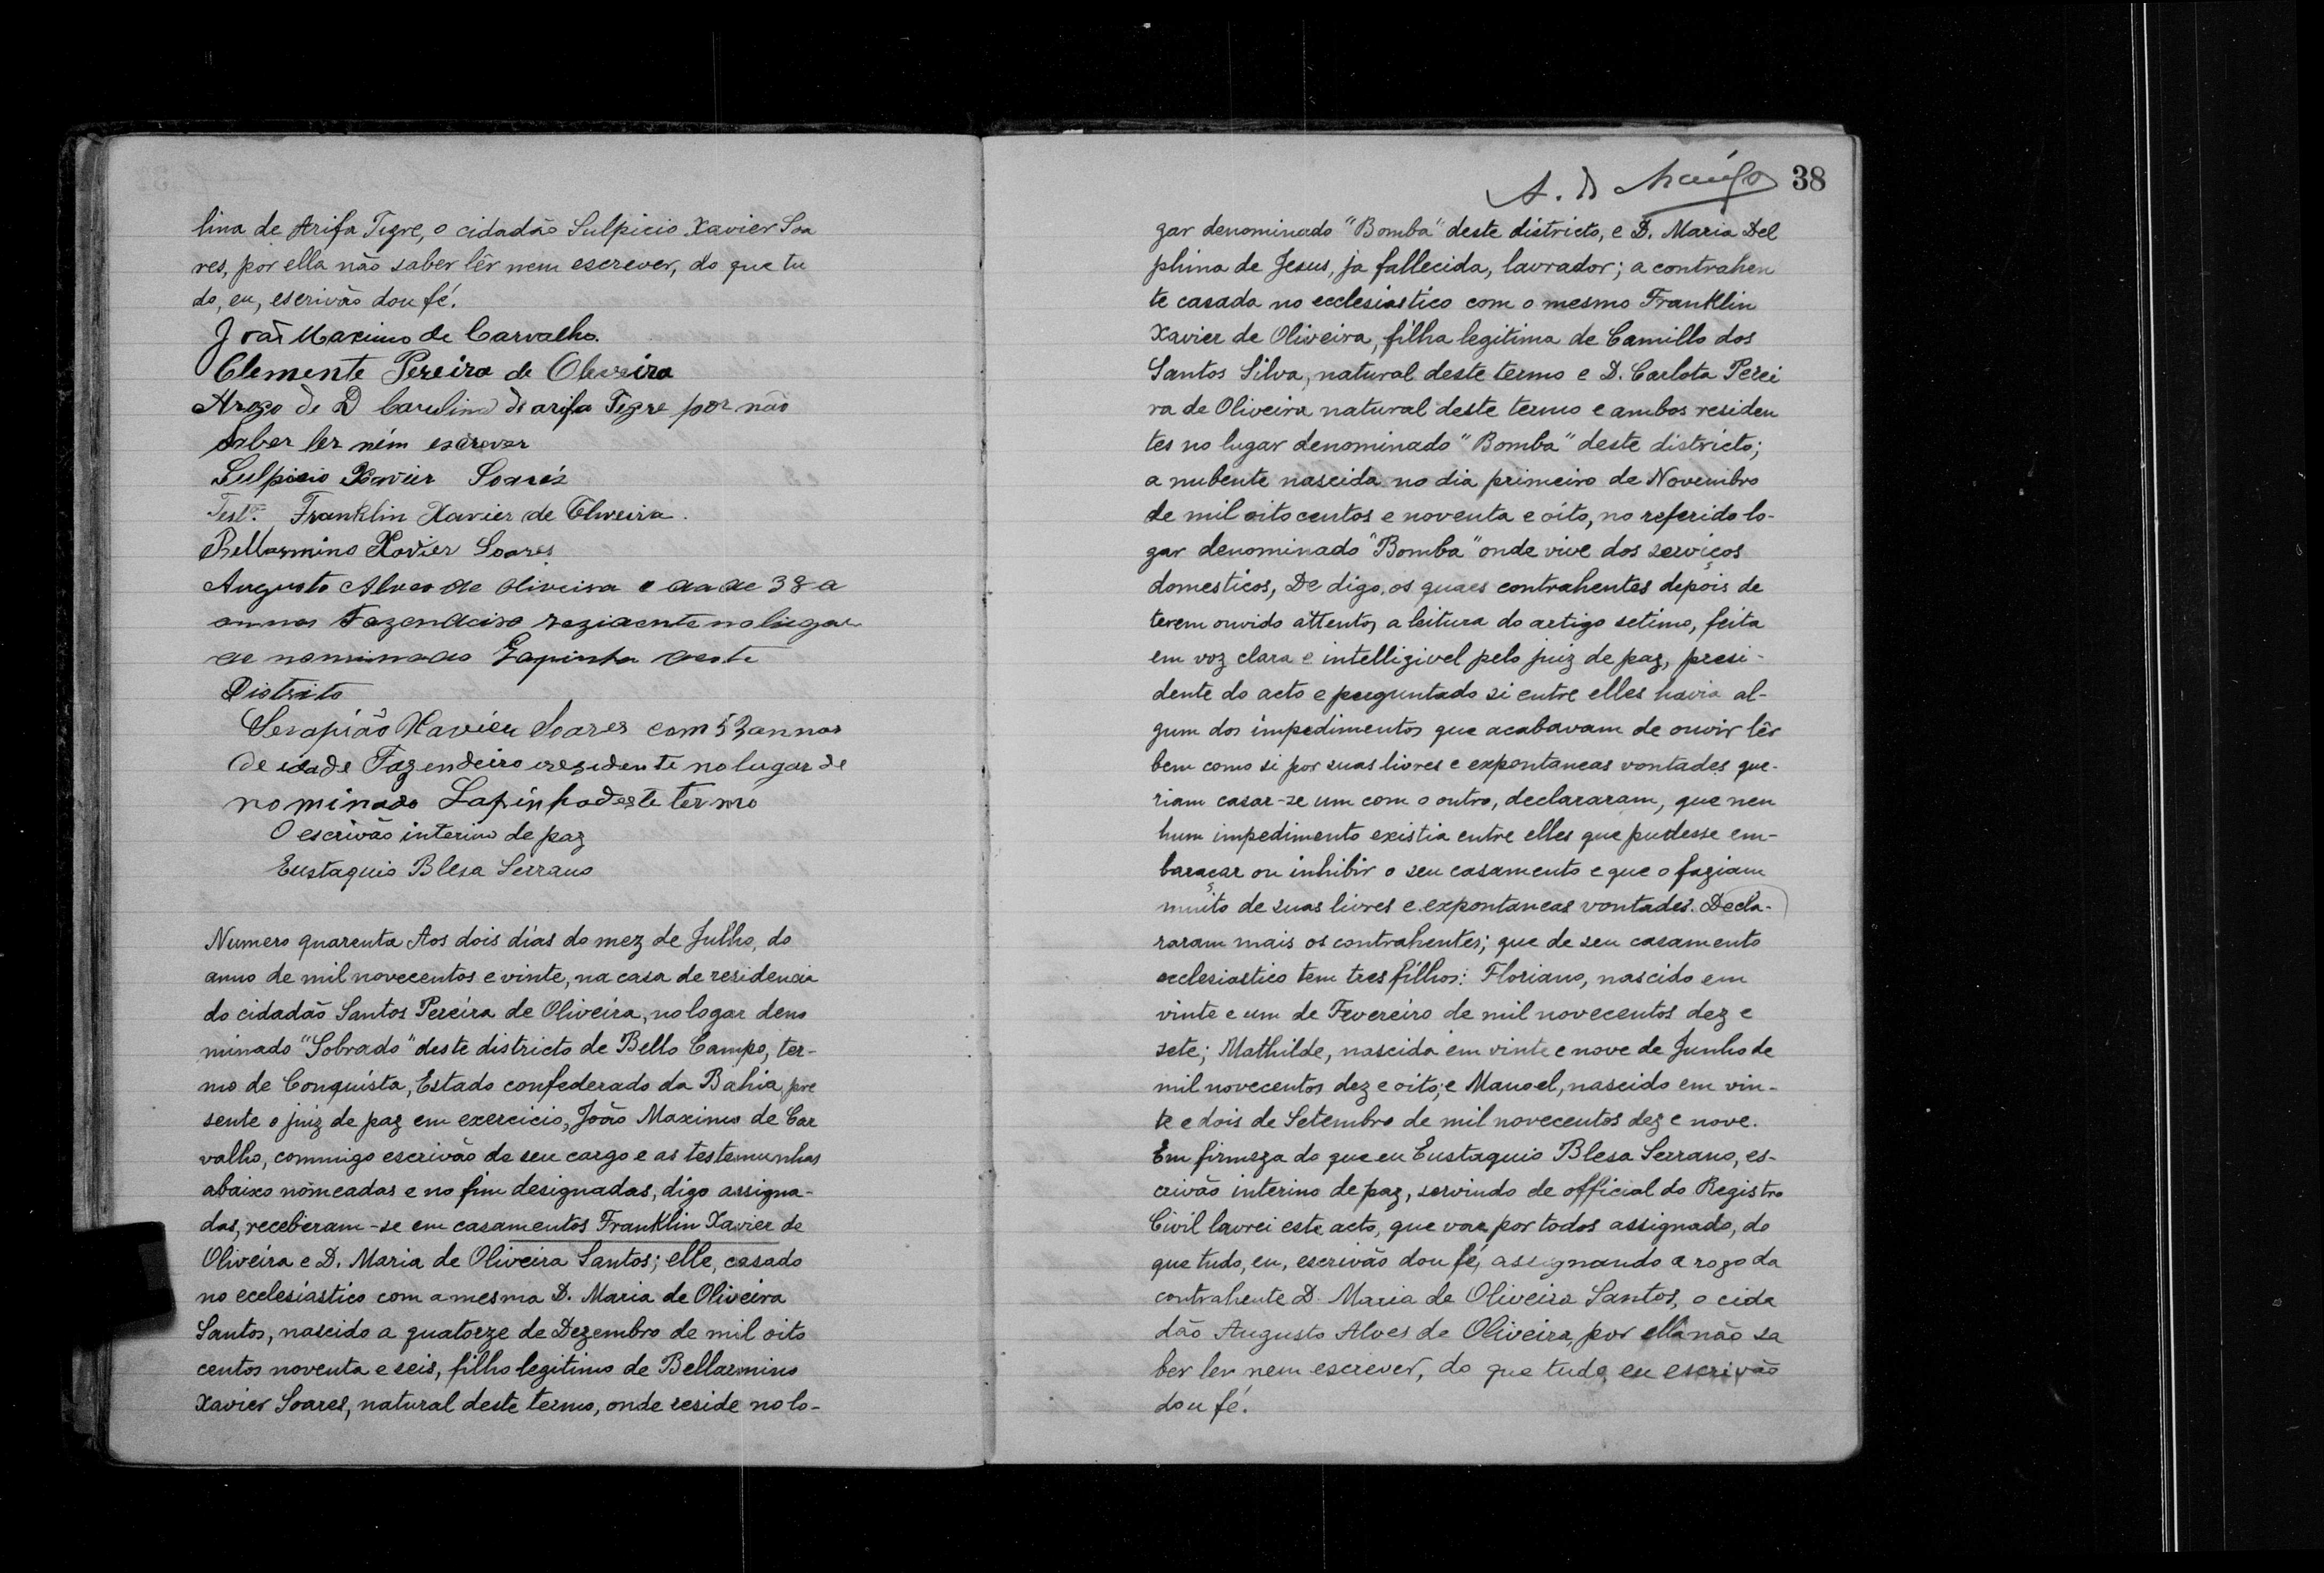 lina de Arifa Tigre, o cidadão Sulpicio Xavier Soa
res, por ella não saber lêr nem escrever, do que tu
do, eu, escrivão dou fé.
João Maximo de Carvalho.
Clemente Pereira de Oliveira
Arogo de D Carulina de arifa Tigre por não
saber ler ném escrever
Sulpicio Xavier Soares
Test.as Franklin Xavier de Oliveira.
Bellarmino Xavier Soares
Augusto Alves de Oliveira e dade 38 a
annos Fazendeiro rezidente no lugar
de nominado Lapinha deste
Distrito
Serapião Xavier Soares com 53 annos
de idade Fazendeiro residente no lugar de
nominado Lapinha deste termo
O escrivão interino de paz
Eustaquio Blesa Serrano
Numero quarenta Aos dois dias do mez de Julho, do
anno de mil novecentos e vinte, na casa de residencia
do cidadão Santos Pereira de Oliveira, no logar deno
minado "Sobrado" deste districto de Bello Campo, ter-
mo de Conquista, Estado confederado da Bahia, pre
sente o juiz de paz em exercicio, João Maximo de Car
valho, commigo escrivão de seu cargo e as testemunhas
abaixo nomeadas e no fim designadas, digo assigna-
das, receberam-se em casamentos Franklin Xavier de
Oliveira e D. Maria de Oliveira Santos; elle, casado
no ecclesiastico com a mesma D. Maria de Oliveira
Santos, nascido a quatorze de Dezembro de mil oito
centos noventa e seis, filho legitimo de Bellarmino
Xavier Soares, natural deste termo, onde reside no lo-
38
gar denominado "Bomba" deste districto, e D. Maria Del
phina de Jesus, ja fallecida, lavrador; a contrahen
te casada no ecclesiastico com o mesmo Franklin
Xavier de Oliveira, filha legitima de Camillo dos
Santos Silva, natural deste termo e D. Carlota Perei
ra de Oliveira natural deste termo e ambos residen
tes no lugar denominado "Bomba" deste districto;
a nubente nascida no dia primeiro de Novembro
de mil oitocentos e noventa e oito, no referido lo-
gar denominado "Bomba" onde vive dos serviços
domesticos, De digo, os quaes contrahentes depois de
terem ouvido attentos a leitura do artigo setimo, feita
em voz clara e intelligivel pelo juiz de paz, presi-
dente do acto e perguntado si entre elles havia al-
gum dos impedimentos que acabavam de ouvir lêr
bem como si por suas livres e expontaneas vontades que-
riam casar-se um com o outro, declararam, que nen
hum impedimento existia entre elles que pudesse em-
baraçar ou inhibir o seu casamento e que o faziam
muito de suas livres e expontaneas vontades. Decla-
raram mais os contrahentes; que de seu casamento
ecclesiastico tem tres filhos: Floriano, nascido em
vinte e um de Fevereiro de mil novecentos dez e
sete; Mathilde, nascida em vinte e nove de Junho de
mil novecentos dez e oito; e Manoel, nascido em vin-
te e dois de Setembro de mil novecentos dez e nove.
Em firmeza do que eu Eustaquio Blesa Serrano, es-
crivão interino de paz, servindo de official do Registro
Civil lavrei este acto, que vae por todos assignado, do
que tudo, eu, escrivão dou fé, assignando a rogo da
contrahente D. Maria de Oliveira Santos, o cida
dão Augusto Alves de Oliveira, por ella não sa
ber ler nem escrever, do que tudo, eu escrivão
dou fé.